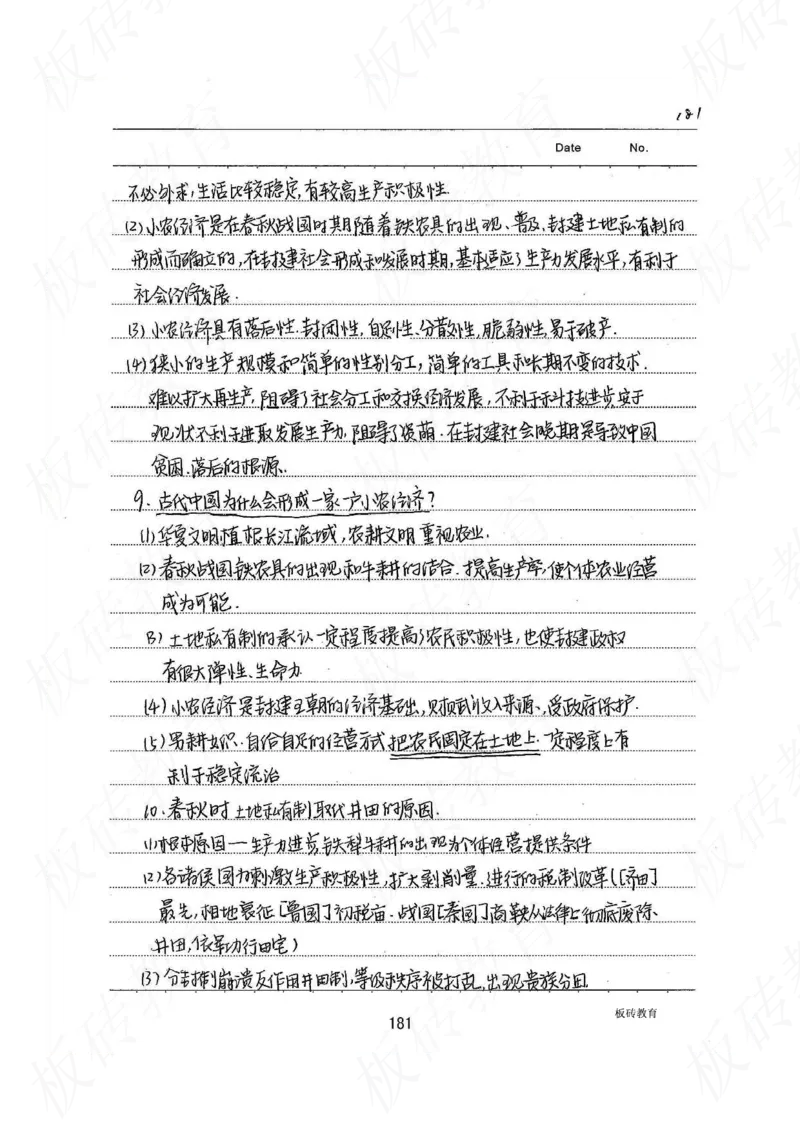 181
Date No.
不必外求,生活比较稳定,有较高生产积极性.
(2)小农经济是在春秋战国时期随着铁农具的出现、普及、封建土地私有制的
形成而确立的,在封建社会形成和发展时期,基本适应了生产力发展水平,有利于
社会经济发展.
(3)小农经济具有落后性.封闭性,自足性、分散性,脆弱性,易于破产.
(4)狭小的生产规模和简单的性别分工,简单的工具和长期不变的技术.
难以扩大再生产,阻碍了社会分工和交换经济发展,不利于科技进步,安于
现状不利于进取发展生产力,阻碍了资萌.在封建社会晚期是导致中国
贫困、落后的根源.
9.古代中国为什么会形成一家一户小农经济?
(1)华夏文明植根长江流域,农耕文明重视农业.
(2)春秋战国铁农具的出现和牛耕的结合.提高生产率,使个体农业经营
成为可能.
(3)土地私有制的承认一定程度提高了农民积极性,也使封建政权
有很大弹性、生命力
(4)小农经济是封建王朝的经济基础,财政收入来源、,受政府保护.
(5)男耕女织.自给自足的经营方式把农民固定在土地上.一定程度上有
利于稳定统治
10、春秋时土地私有制取代井田的原因.
(1)根本原因一生产力进步,铁犁牛耕的出现为个体经营提供条件
(2)各诸侯国为刺激生产积极性,扩大剥削量.进行的税制改革([齐国]
最先,相地衰征[鲁国]初税亩.战国[秦国]商鞅从法律上彻底废除
井田,依军功行田宅)
(3)分封制崩溃反作用井田制,等级秩序被打乱,出现贵族分田.
181
板砖教育